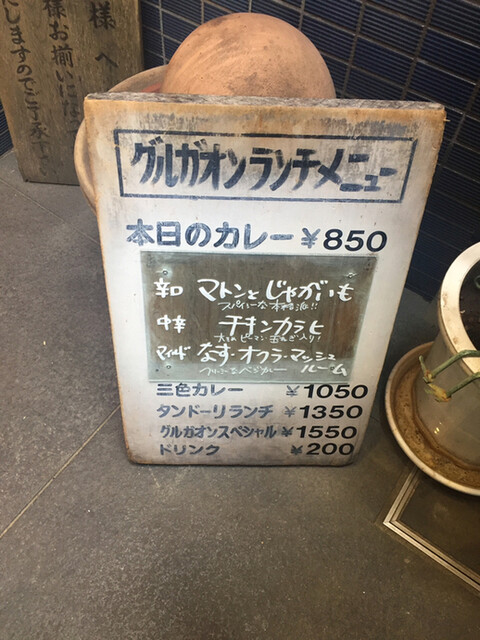 様へ
様お揃いにな
たしますのでご了承下さい
グルガオンランチメニュー
本日のカレー ¥850
辛口 マトンとじゃがいも
スパイシーな本格派!!
中辛 チキンカラヒ
ピーマン 玉ねぎ入り!
マイルド なす・オクラ・マッシュ
ルーム
三色カレー ¥1050
タンドーリランチ ¥1350
グルガオンスペシャル ¥1550
ドリンク ¥200